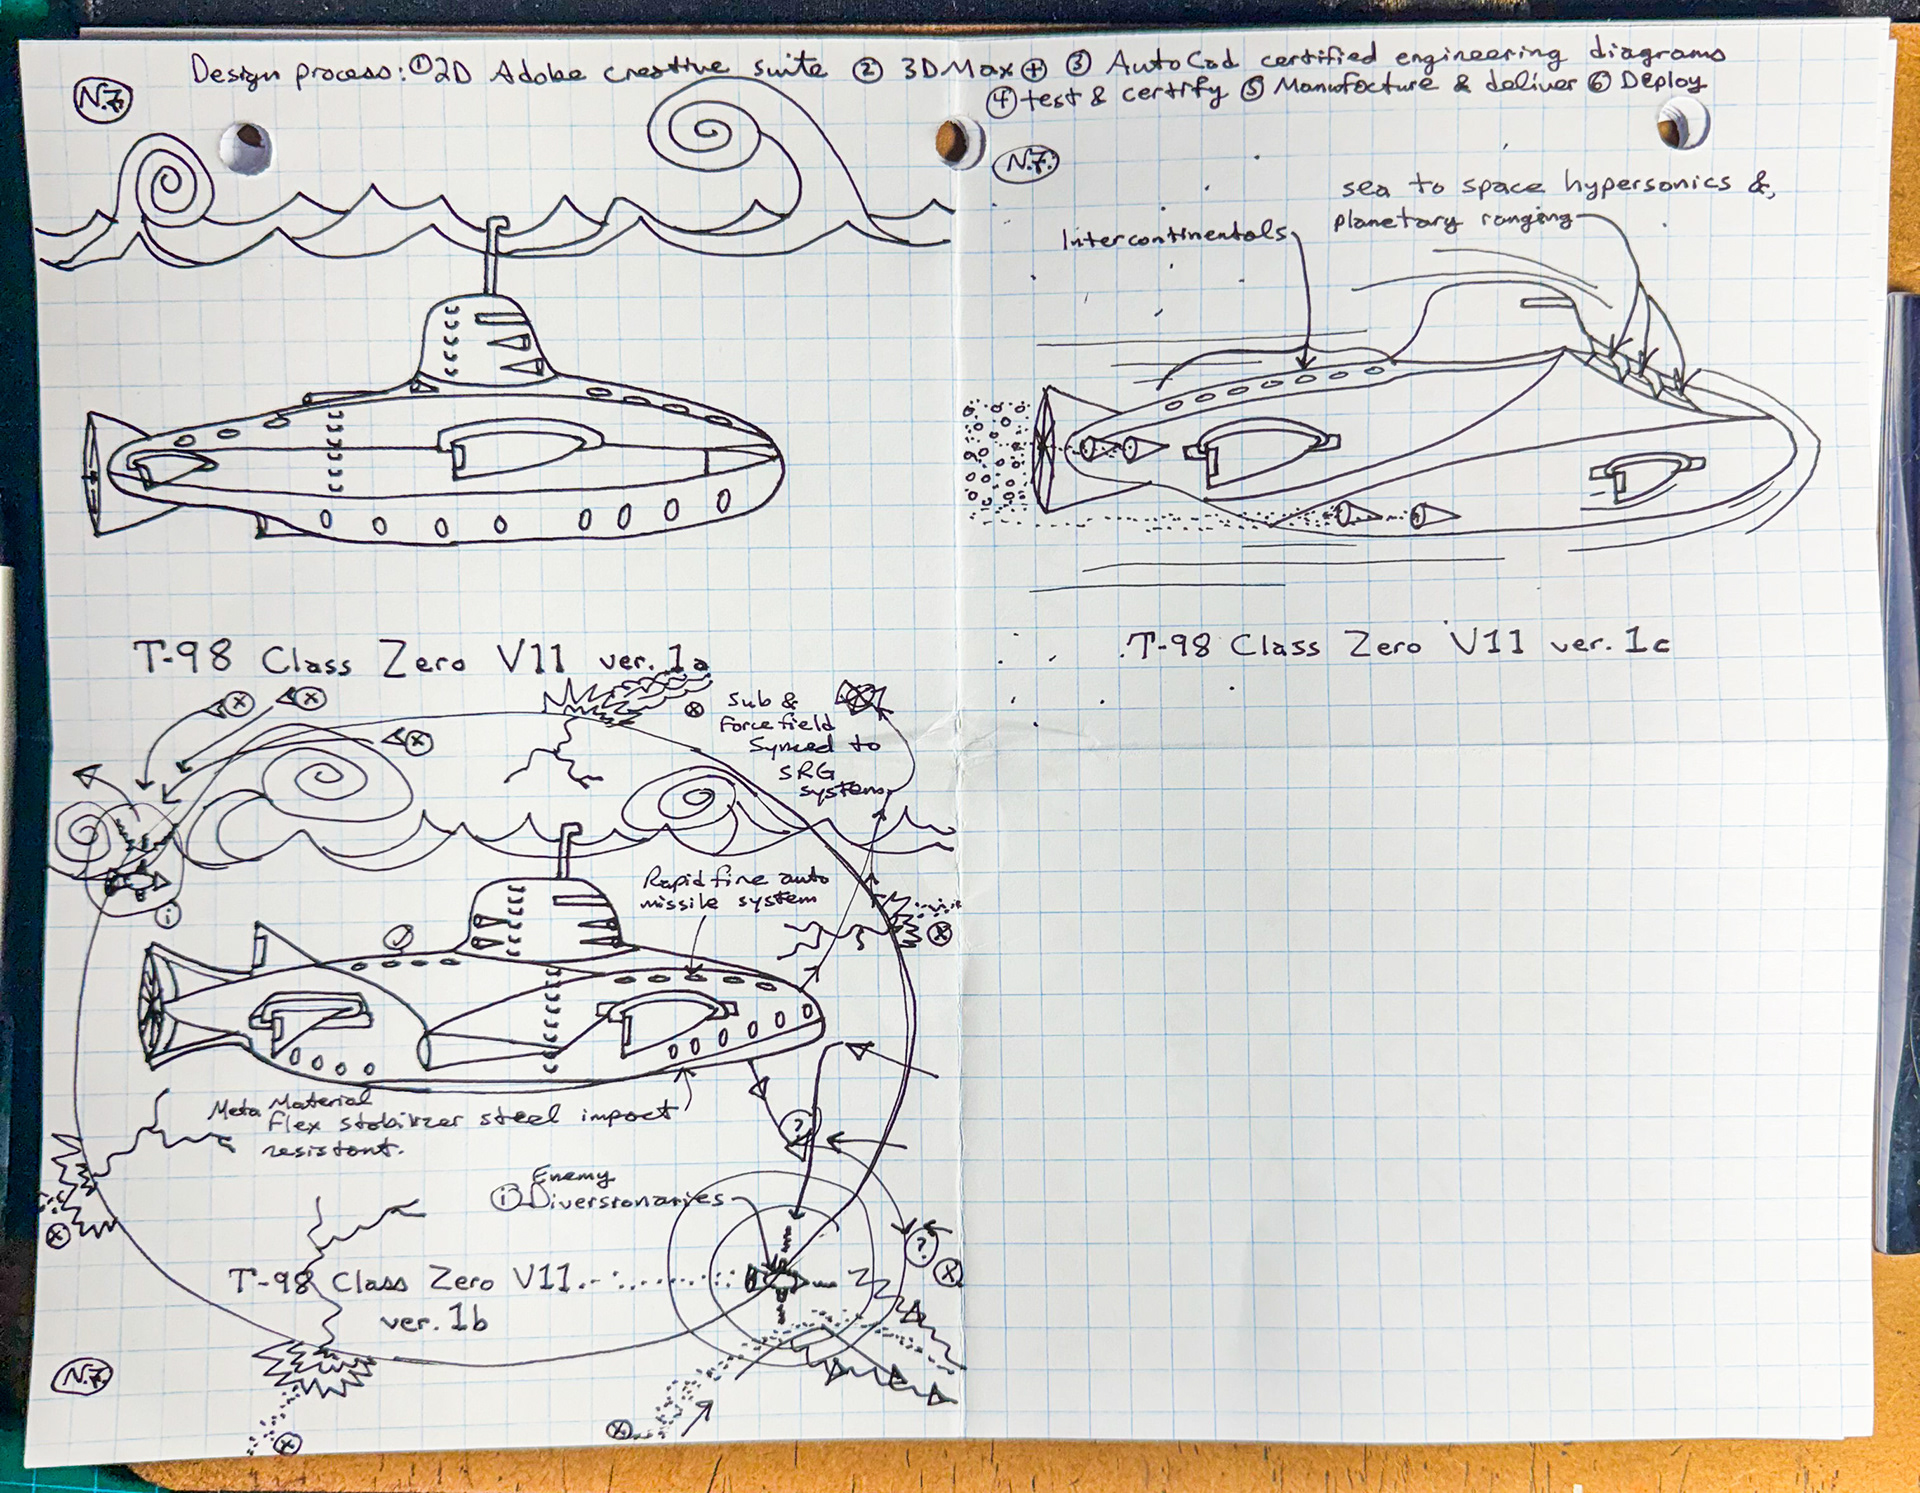 Design process: ① 2D Adobe creative suite ② 3DMax+ ③ AutoCad certified engineering diagrams
④ test & certify ⑤ Manufacture & deliver ⑥ Deploy
N.7.
N.7.
sea to space hypersonics &
planetary ranging
Intercontinentals
T-98 Class Zero V11 ver. 1a
T-98 Class Zero V11 ver. 1c
Sub &
Forcefield
Synced to
SRG
system
Rapid fire auto
missile system
Meta Material
Flex stabilizer steel impact
resistant.
Enemy
ⓘ Diversionaries
T-98 Class Zero V11
ver. 1b
N.7.